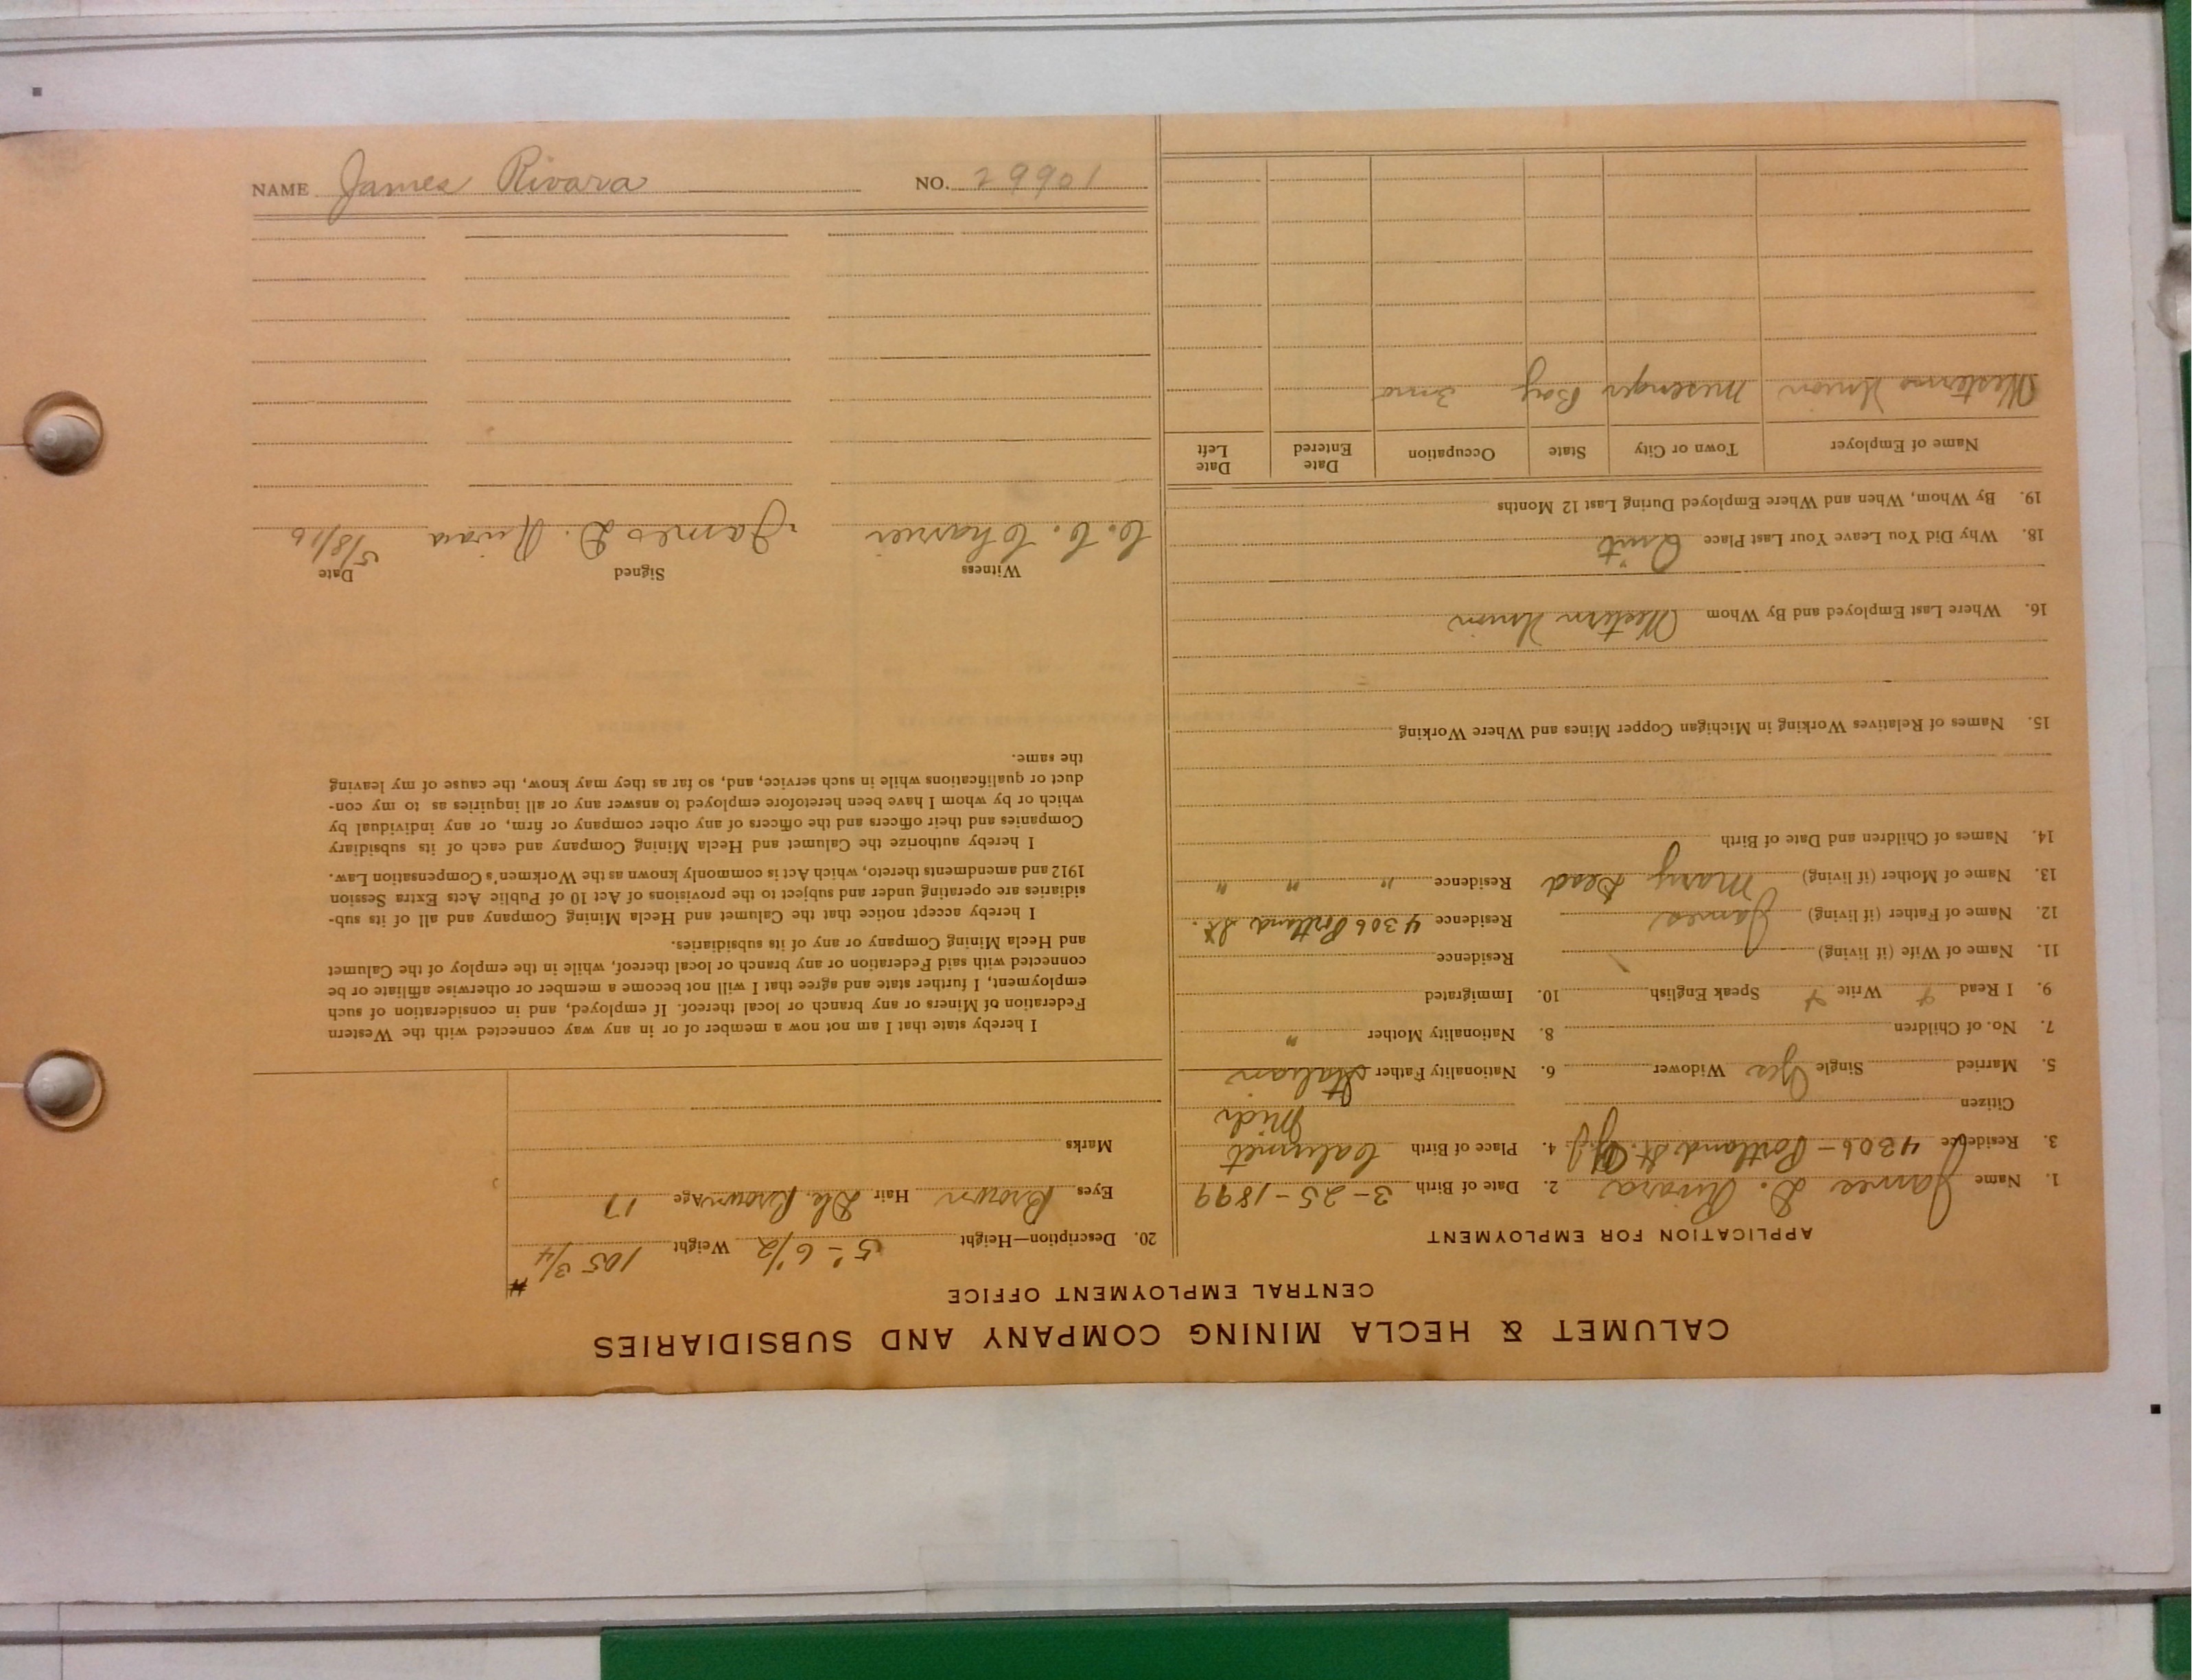 CALUMET & HECLA MINING COMPANY AND SUBSIDIARIES
CENTRAL EMPLOYMENT OFFICE
APPLICATION FOR EMPLOYMENT
1. Name James D. Rivara 2. Date of Birth 3-25-1899
3. Residence 4306-Portland St. 4. Place of Birth Calumet
Mich
Citizen
5. Married Single Yes Widower 6. Nationality Father Italian
7. No. of Children 8. Nationality Mother "
9. I Read Write Speak English 10. Immigrated
11. Name of Wife (if living) Residence
12. Name of Father (if living) James Residence 4306 Portland St.
13. Name of Mother (if living) Mary Dead Residence " " "
14. Names of Children and Date of Birth
15. Names of Relatives Working in Michigan Copper Mines and Where Working
16. Where Last Employed and By Whom Western Union
18. Why Did You Leave Your Last Place Quit
19. By Whom, When and Where Employed During Last 12 Months
Name of Employer Town or City State Occupation Date Entered Date Left
Western Union Messenger Boy 3 mo
20. Description—Height 5'-6 1/2 Weight 105 3/4 #
Eyes Brown Hair Dk. Brown Age 17
Marks
I hereby state that I am not now a member of or in any way connected with the Western
Federation of Miners or any branch or local thereof. If employed, and in consideration of such
employment, I further state and agree that I will not become a member or otherwise affiliate or be
connected with said Federation or any branch or local thereof, while in the employ of the Calumet
and Hecla Mining Company or any of its subsidiaries.
I hereby accept notice that the Calumet and Hecla Mining Company and all of its sub-
sidiaries are operating under and subject to the provisions of Act 10 of Public Acts Extra Session
1912 and amendments thereto, which Act is commonly known as the Workmen's Compensation Law.
I hereby authorize the Calumet and Hecla Mining Company and each of its subsidiary
Companies and their officers and the officers of any other company or firm, or any individual by
which or by whom I have been heretofore employed to answer any or all inquiries as to my con-
duct or qualifications while in such service, and, so far as they may know, the cause of my leaving
the same.
Witness Signed Date
C. C. James D. Rivara 5/8/16
NAME James Rivara NO. 29901